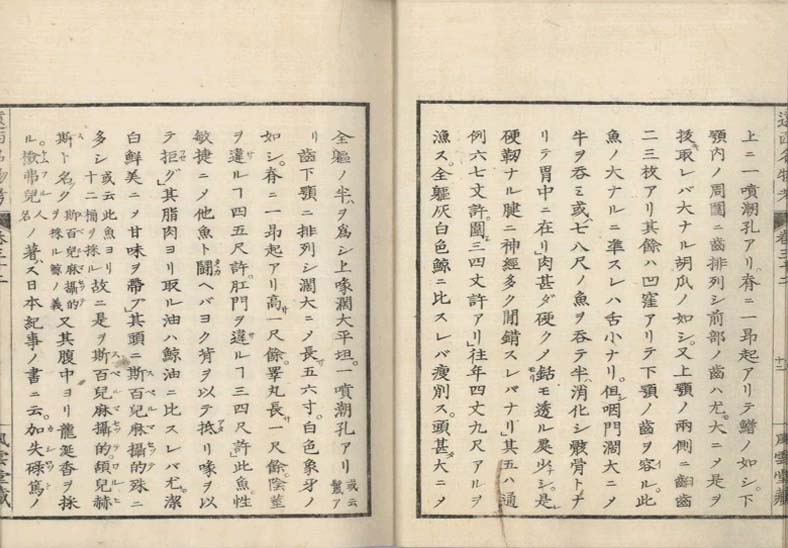 上ニ一噴潮孔アリ。脊ニ一昂起アリテ鰭ノ如シ。下
顎内ノ周圍ニ齒排列シ前部ノ齒ハ尤大ニメ是ヲ
抜取レバ大ナル胡瓜ノ如シ。又上顎ノ兩側ニ齒
二三枚アリ其餘ハ凹窪アリテ下顎ノ齒ヲ容ル。此
魚ノ大ナルニ準スレハ舌小ナリ。但咽門濶大ニメ
牛ヲ呑ミ或七八尺ノ魚ヲ呑テ半消化シ骸骨トナ
リテ胃中ニ在リ肉甚ダ硬クメ銛モ透ル異少シ。是
硬靭ナル腱ニ神經多ク間錯スレバナリ其五ハ通
例六七丈許。圍三四丈許アリ往年四丈九尺アルヲ
漁ス。全軀灰白色鯨ニ比スレバ瘦削ス。頭甚大ニメ
全軀ノ半ヲ爲シ上喙濶大平坦。一噴潮孔アリ 或云鬣ア
リ 齒下顎ニ排列シ濶大ニメ長サ五六寸。白色象牙ノ
如シ。脊ニ一昂起アリ高サ一尺餘。睪丸長サ一尺餘。陰莖
ヲ違ルヿ四五尺許肛門ヲ違ルヿ三四尺許此魚性
敏捷ニメ他魚ト鬪ヘバヨク背ヲ以テ抵リ喙ヲ以
テ拒グ其脂肉ヨリ取ル油ハ鯨油ニ比スレバ尤潔
白鮮美ニメ甘味ヲ帶ブ其頭ニ斯百兒麻攝的殊ニ
多シ 或云此魚ヨリ十二桶ヲ採ル 故ニ是ヲ斯百兒麻攝的額兒赫
斯ト名ク 斯百兒麻攝的ヲ採ル鯨ノ義 又其腹中ヨリ龍涎香ヲ採
ル。檢弗兒 人名 ノ著ス日本紀事ノ書ニ云。加失碌篤ノ
遠西名物考 卷三十二 十二 風雲堂藏
遠西名物考 卷三十二 風雲堂藏